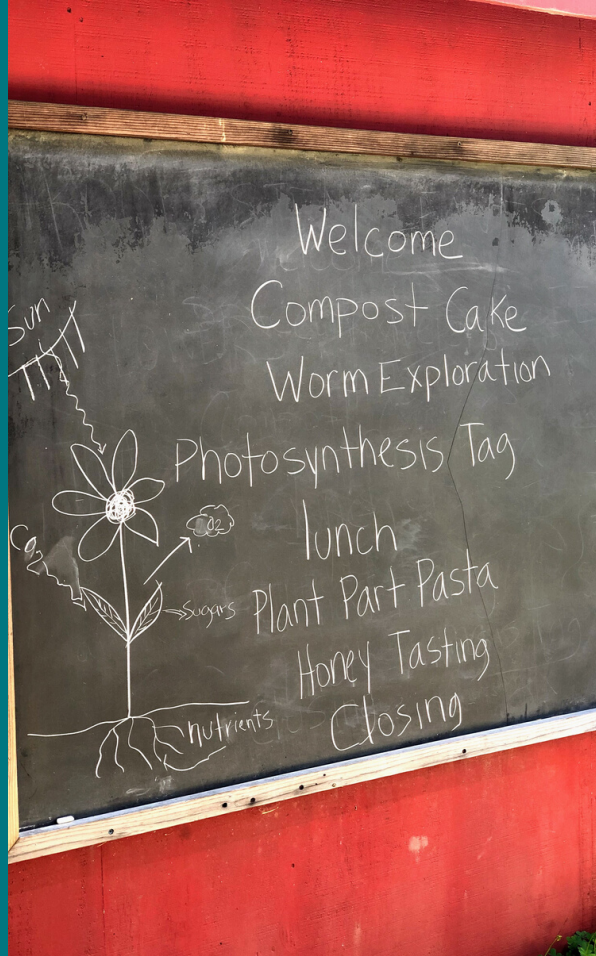 Welcome
Compost Cake
Worm Exploration
Photosynthesis Tag
lunch
Plant Part Pasta
Honey Tasting
Closing
Sun
CO2
O2
Sugars
nutrients